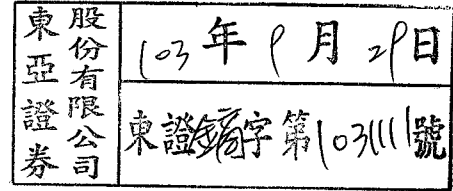 東亞證券
股份有限公司
103年9月29日
東證鏑字第1031111號